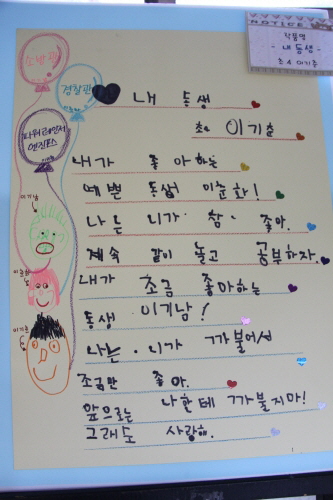 NOTICE
작품명
- 내 동생 -
초4 이기준
소방관
경찰관
파워레인저
엔진포스
내 동생
초4 이기준
내가 좋아하는
예쁜 동생 이준화!
나는 니가 참 좋아.
계속 같이 놀고 공부하자.
내가 조금 좋아하는
동생 이기남!
나는 니가 까불어서
조금만 좋아.
앞으로는 나한테 까불지마!
그래도 사랑해.
이기남
이준화
이기준